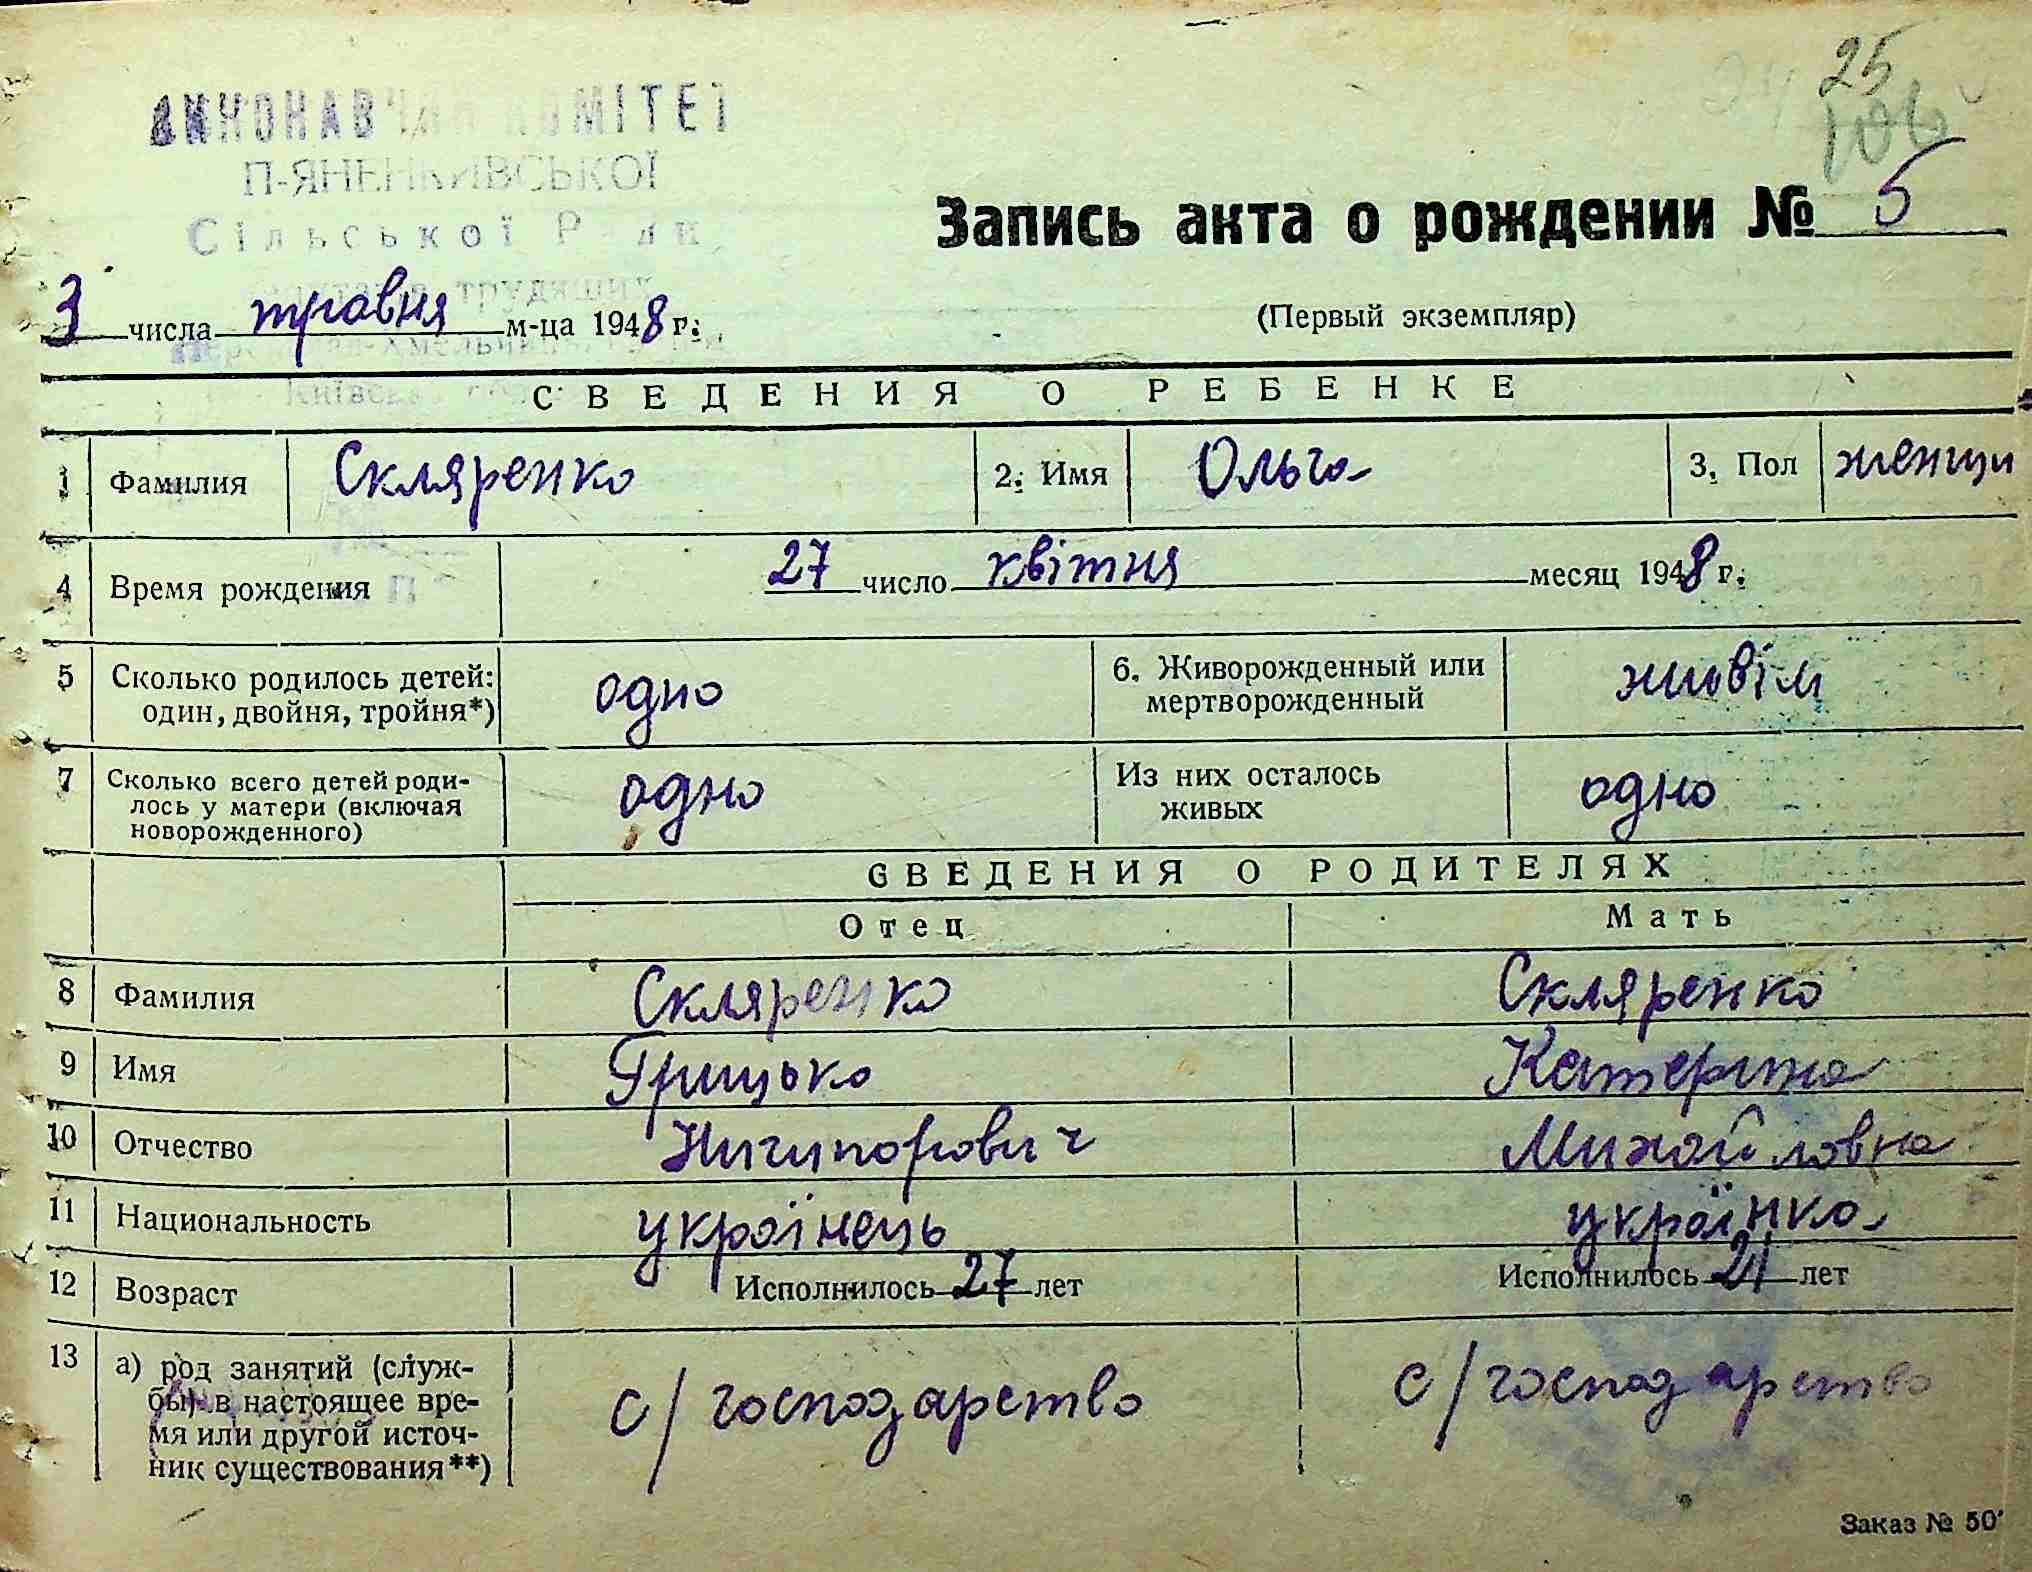 ВИКОНАВЧИЙ КОМІТЕТ
П-ЯНЕНКІВСЬКОЇ
Сільської Ради
трудящих
25
106
Запись акта о рождении № 5
3 числа травня м-ца 1948 г.
(Первый экземпляр)
СВЕДЕНИЯ О РЕБЕНКЕ
1 Фамилия Скляренко 2. Имя Ольга 3. Пол женщи
4 Время рождения 27 число квітня месяц 1948 г.
5 Сколько родилось детей: один, двойня, тройня*) одно 6. Живорожденный или мертворожденный живім
7 Сколько всего детей роди-
лось у матери (включая
новорожденного) одно Из них осталось живых одно
СВЕДЕНИЯ О РОДИТЕЛЯХ
Отец Мать
8 Фамилия Скляренко Скляренко
9 Имя Грицько Катерина
10 Отчество Ничипорович Михайловна
11 Национальность українець українка
12 Возраст Исполнилось 27 лет Исполнилось 21 лет
13 а) род занятий (служ-
бы) в настоящее вре-
мя или другой источ-
ник существования**) с/господарство с/господарство
Заказ № 50